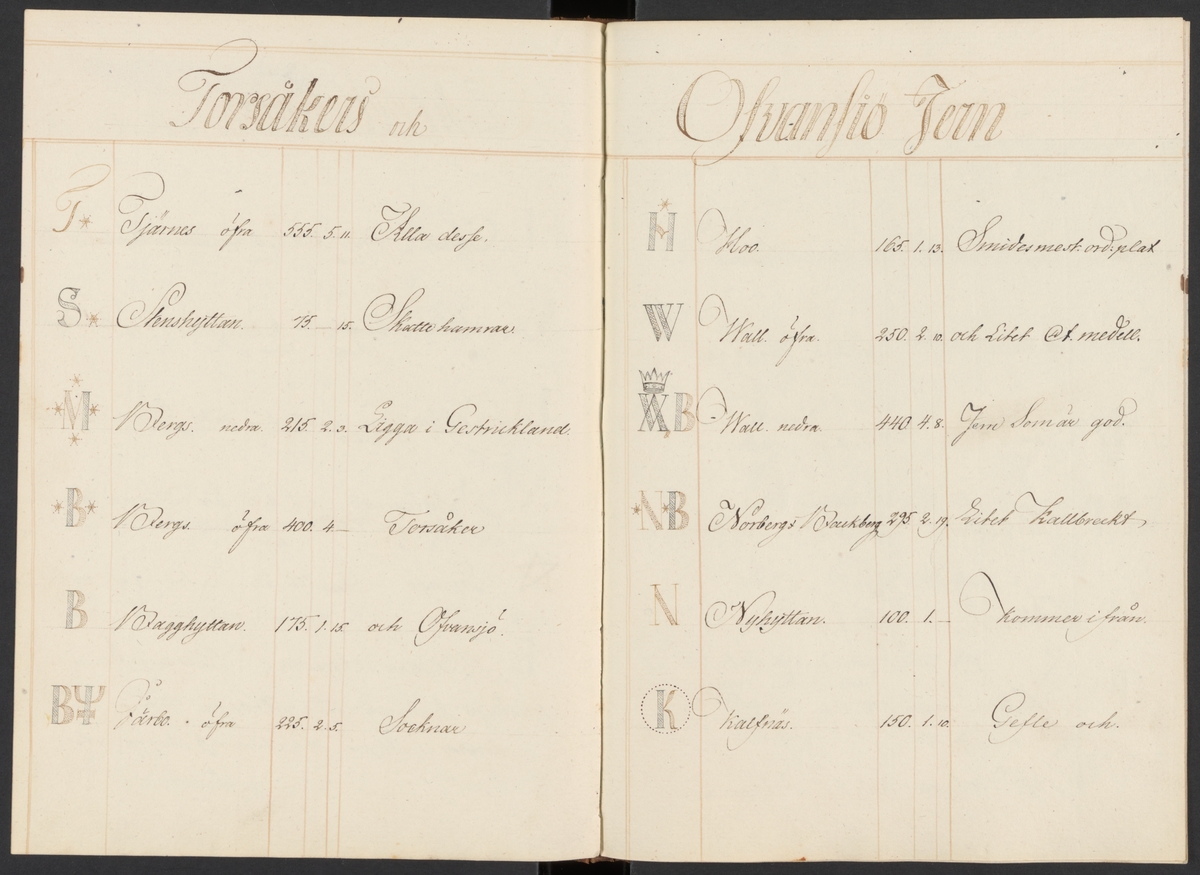 Torsåkers och
T* Tjärnes öfra 555. 5. 11. Alla desse.
S* Stenshyttan. 75. — 15. Skatte hamrar
*M* Bergs. nedra. 215. 2. 3. Ligga i Gestrickland.
*B* Bergs. öfra 400. 4 — Torsåker
B Bagghyttan. 175. 1. 15. och Ofvansjö.
B öfra 225. 2. 5. Socknar
Ofvansiö Jern
H Hoo. 165. 1. 13. Smidesmest: ord: plat
W Wall. öfra. 250. 2. 10. och Litet Ct. medell.
WB Wall. nedra. 440. 4. 8. Jern Som är god.
*N*B Norbergs Backberg 295 2. 19. Litet Kallbreckt
N Nyhyttan. 100. 1. — kommer i från.
K Kalfnäs. 150. 1. 10. Gefle och.